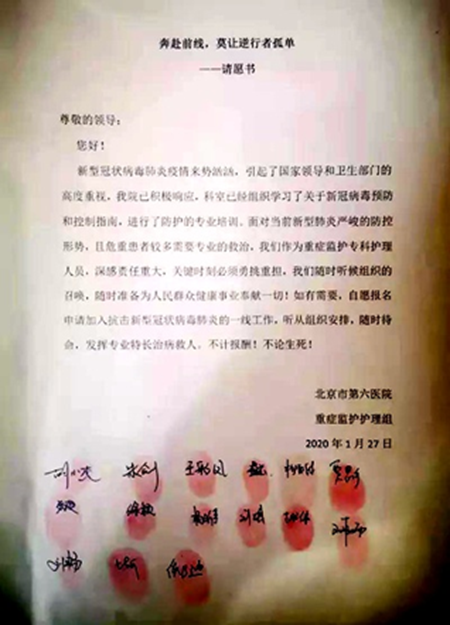 奔赴前线，莫让逆行者孤单
——请愿书
尊敬的领导：
您好！
新型冠状病毒肺炎疫情来势汹汹，引起了国家领导和卫生部门的
高度重视，我院已积极响应，科室已经组织学习了关于新冠病毒预防
和控制指南，进行了防护的专业培训。面对当前新型肺炎严峻的防控
形势，且危重患者较多需要专业的救治，我们作为重症监护专科护理
人员，深感责任重大，关键时刻必须勇挑重担，我们随时听候组织的
召唤，随时准备为人民群众健康事业奉献一切！如有需要，自愿报名
申请加入抗击新型冠状病毒肺炎的一线工作，听从组织安排，随时待
命，发挥专业特长治病救人。不计报酬！不论生死！
北京市第六医院
重症监护护理组
2020 年 1 月 27 日